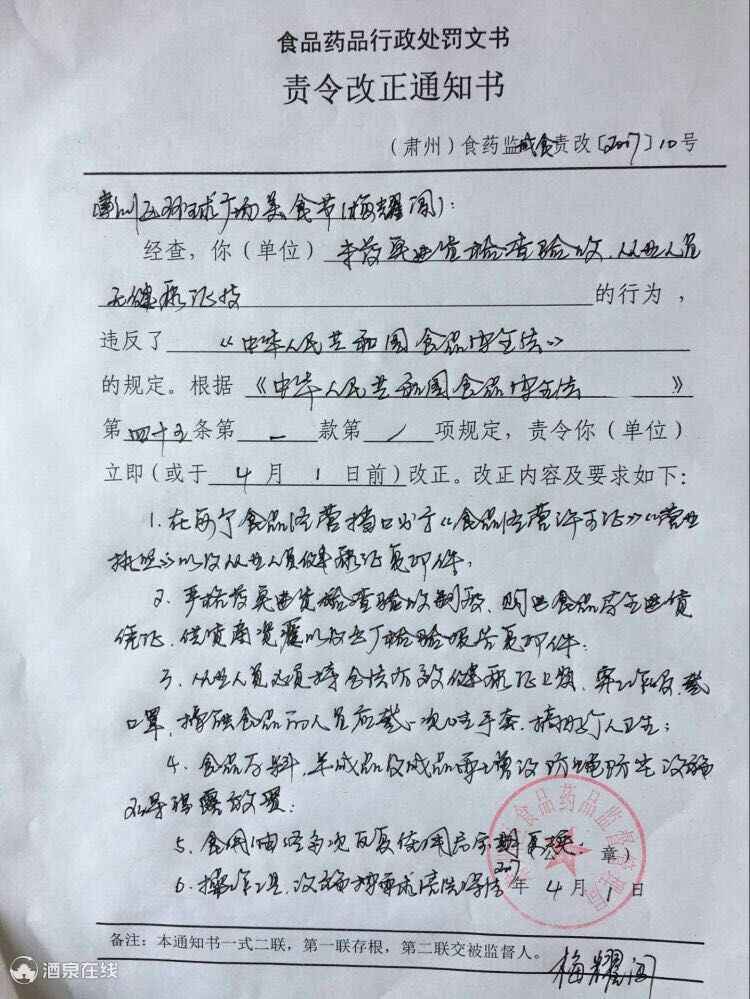 食品药品行政处罚文书
责令改正通知书
（肃州）食药监城食责改〔2017〕10号
肃州区环球广场美食节(梅耀阁):
经查，你（单位）未落实进货检查验收、从业人员
无健康证按的行为，
违反了《中华人民共和国食品安全法》
的规定。根据《中华人民共和国食品安全法》
第四十五条第一款第/项规定，责令你（单位）
立即（或于4月1日前）改正。改正内容及要求如下：
1.在每个食品经营档口公示《食品经营许可证》《营业
执照》以及从业人员健康证复印件;
2.严格落实进货检查验收制度、购进食品存全进货
凭证、供货商资质以及出厂检验报告复印件;
3.从业人员必须持合法有效健康证上岗,穿工作服、戴
口罩,接触食品的人员应戴一次性手套,搞好个人卫生;
4.食品原料、半成品及成品要增设防蝇防尘设施
不得裸露放置;
5.食用油经多次反复使用后定期更换;
章）
6.操作工具、设施按要求清洗保洁
2017年4月1日
备注：本通知书一式二联，第一联存根，第二联交被监督人。
梅耀阁
食品药品监督管理局
酒泉在线